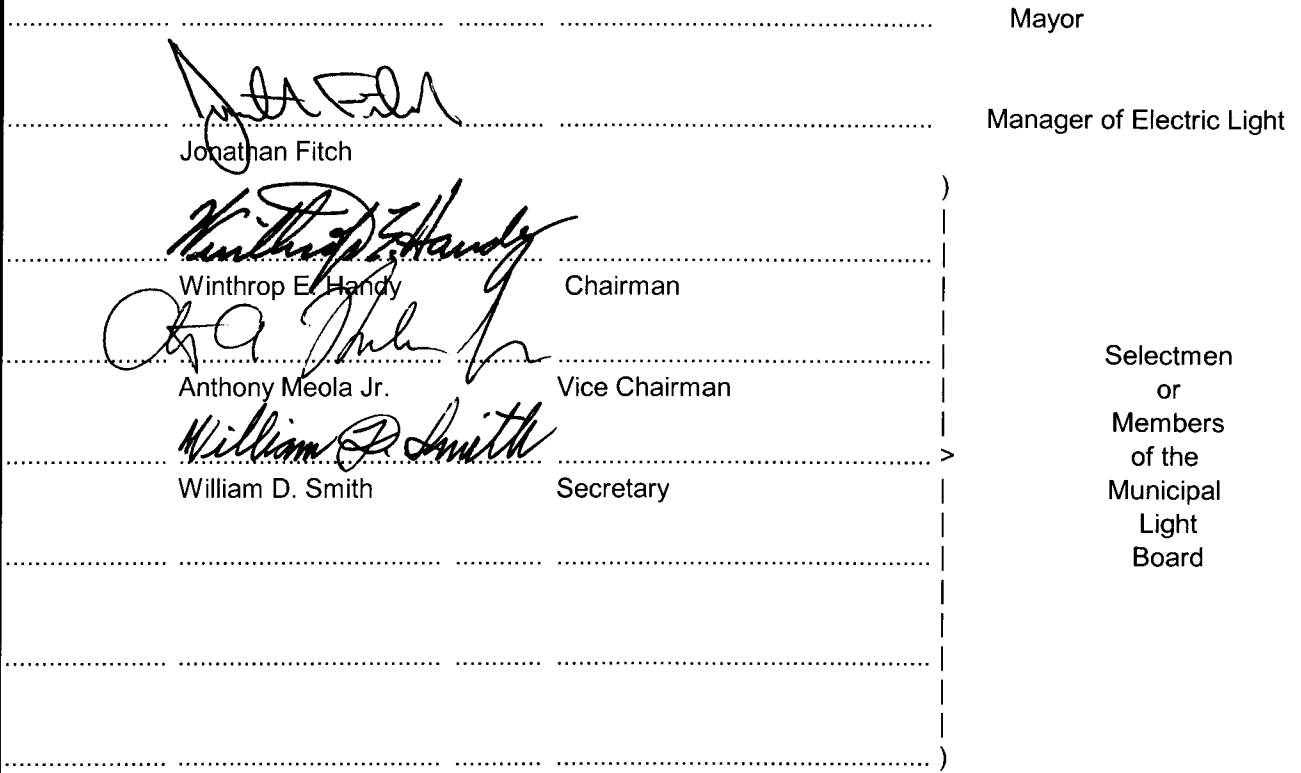 Mayor
Manager of Electric Light
Jonathan Fitch
Winthrop E. Handy
Winthrop E. Handy Chairman
Anthony Meola Jr. Vice Chairman
William D. Smith
William D. Smith Secretary
Selectmen
or
Members
of the
Municipal
Light
Board